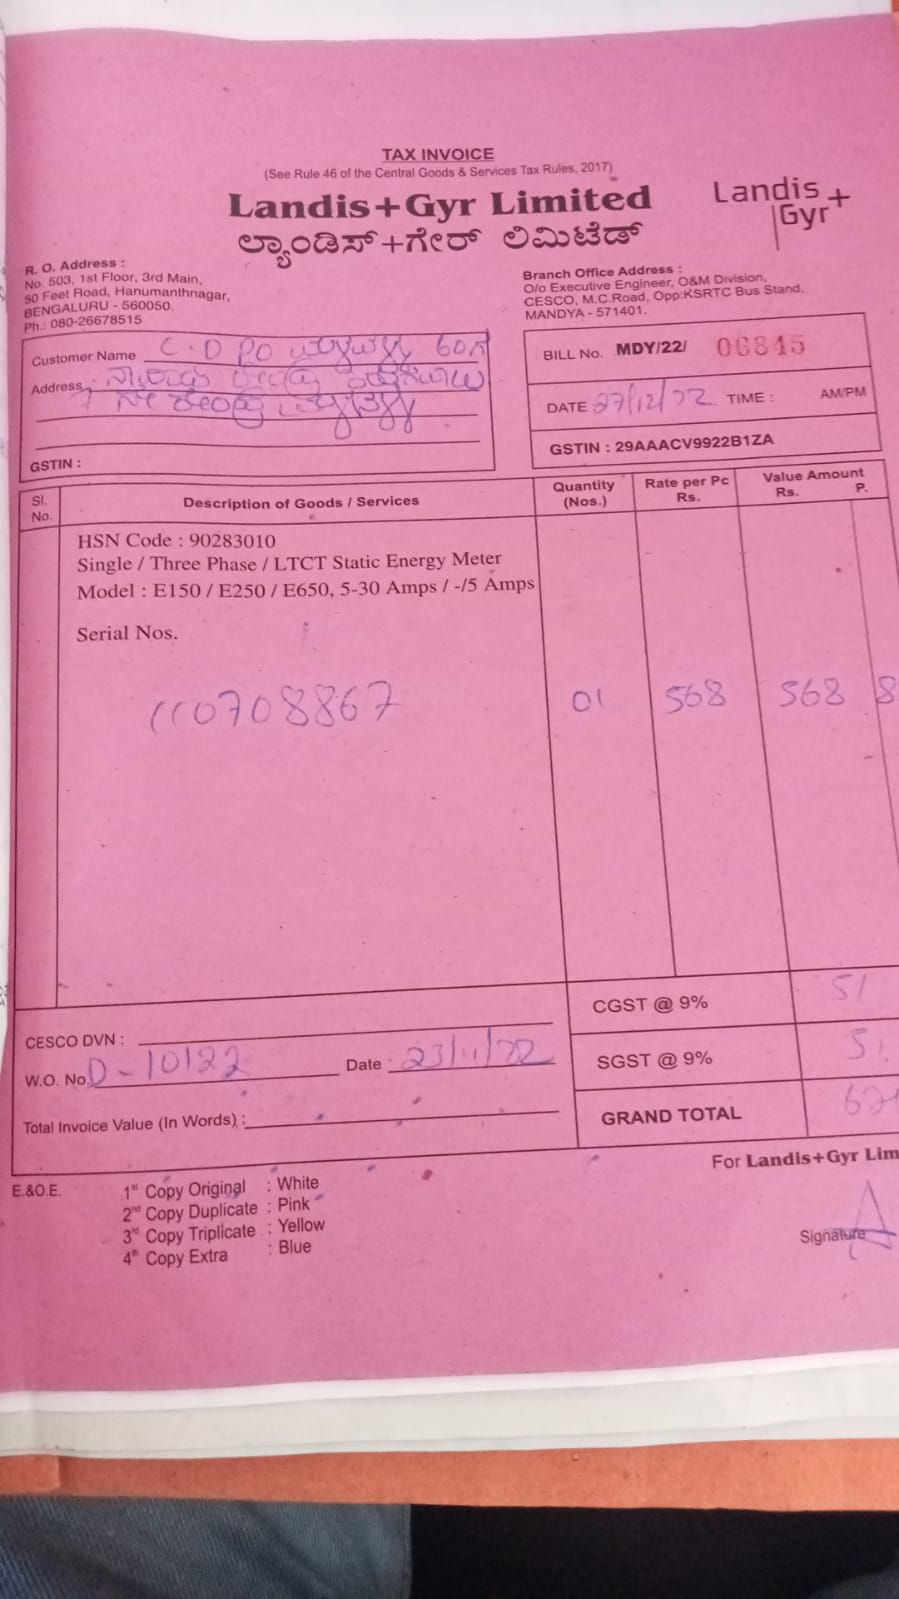 TAX INVOICE
(See Rule 46 of the Central Goods & Services Tax Rules, 2017)
Landis+Gyr Limited
ಲ್ಯಾಂಡಿಸ್+ಗೇರ್ ಲಿಮಿಟೆಡ್
Landis
Gyr+
R. O. Address :
No. 503, 1st Floor, 3rd Main,
50 Feet Road, Hanumanthnagar,
BENGALURU - 560050.
Ph.: 080-26678515
Branch Office Address :
O/o Executive Engineer, O&M Division,
CESCO, M.C.Road, Opp:KSRTC Bus Stand,
MANDYA - 571401.
Customer Name C.DPO
Address :
GSTIN :
BILL No. MDY/22/ 06845
DATE 27/12/22 TIME : AM/PM
GSTIN : 29AAACV9922B1ZA
Sl. No. Description of Goods / Services Quantity (Nos.) Rate per Pc Rs. Value Amount Rs. P.
HSN Code : 90283010
Single / Three Phase / LTCT Static Energy Meter
Model : E150 / E250 / E650, 5-30 Amps / -/5 Amps
Serial Nos.
110708867 01 568 568 8
CGST @ 9% 51
SGST @ 9%
GRAND TOTAL
CESCO DVN :
W.O. No. D-10122 Date : 23/11/22
Total Invoice Value (In Words) :
For Landis+Gyr Lim
E.&O.E.
1st Copy Original : White
2nd Copy Duplicate : Pink
3rd Copy Triplicate : Yellow
4th Copy Extra : Blue
Signature